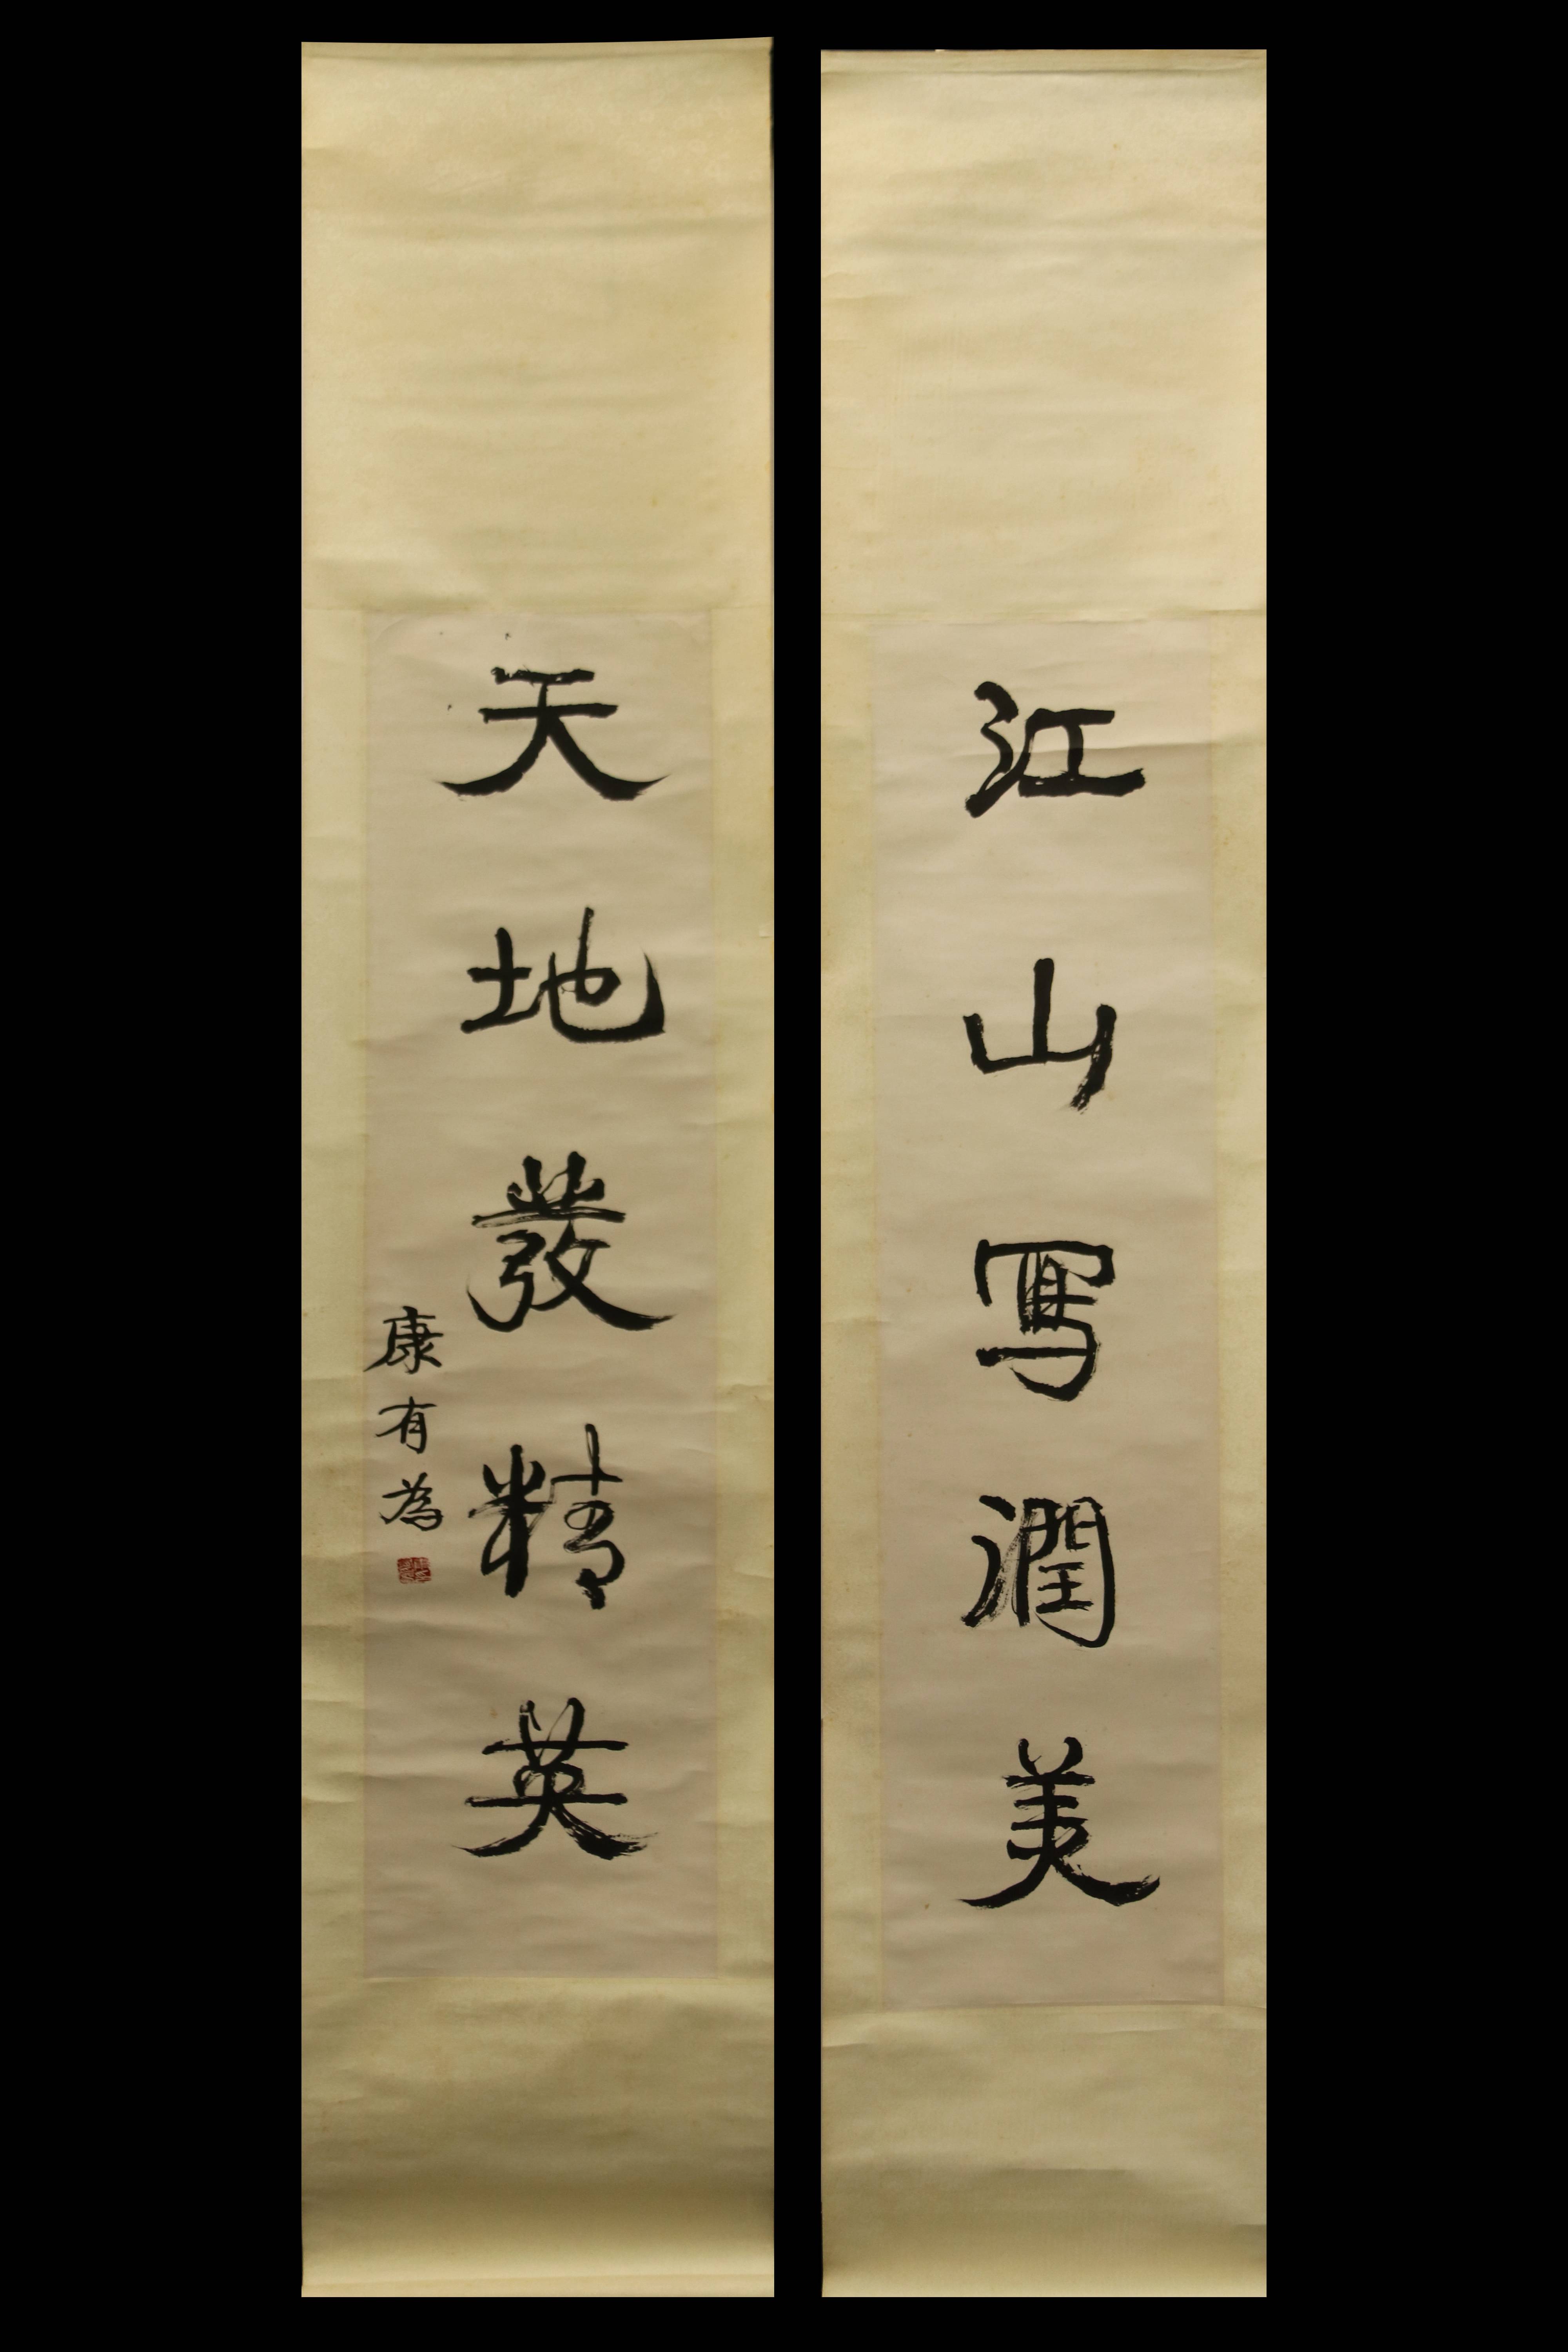 江山寫潤美
天地發精英
康有為